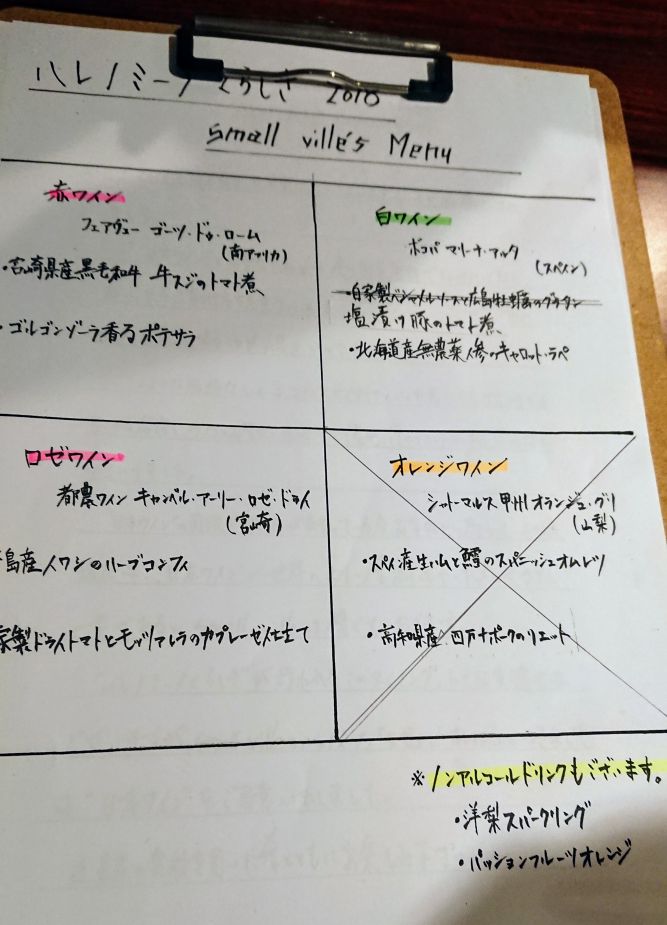 ハレノミーノ くらしき 2010
small ville's Menu
赤ワイン
フェアヴュー ゴーツ・ドゥ・ローム
(南アフリカ)
・宮崎県産黒毛和牛 牛スジのトマト煮
・ゴルゴンゾーラ香るポテサラ
白ワイン
ボカパ マリーナ・アルタ
(スペイン)
・自家製ベシャメルソースと広島牡蠣のグラタン
塩漬け豚のトマト煮
・北海道産無農薬人参のキャロット・ラペ
ロゼワイン
都農ワイン キャンベル・アーリー・ロゼ・ドライ
(宮崎)
島産イワシのハーブコンフィ
家製ドライトマトとモッツァレラのカプレーゼ仕立て
オレンジワイン
シャトーマルス甲州オランジュ・グリ
(山梨)
・スペイン産生ハムと鱈のスパニッシュオムレツ
・高知県産 四万十ポークのリエット
※ノンアルコールドリンクもございます。
・洋梨スパークリング
・パッションフルーツオレンジ